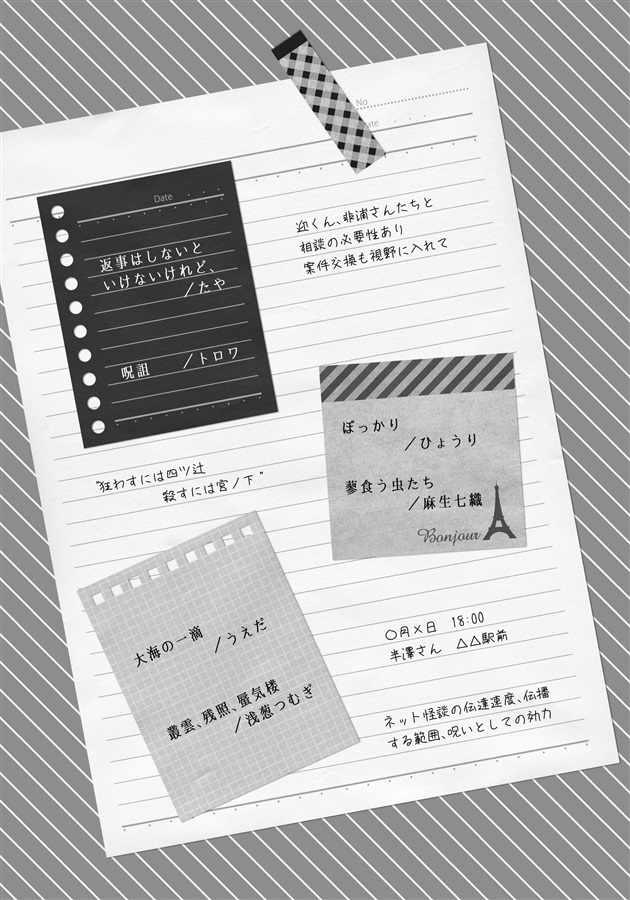 No
Date
Date
返事はしないと
いけないけれど、
／たや
呪詛　／トロワ
迎くん、非浦さんたちと
相談の必要性あり
案件交換も視野に入れて
ぽっかり
／ひょうり
蓼食う虫たち
／麻生七織
Bonjour
"狂わすには四ツ辻
殺すには宮ノ下"
大海の一滴
／うえだ
叢雲、残照、蜃気楼
／浅葱つむぎ
〇月×日　18:00
半澤さん　△△駅前
ネット怪談の伝達速度、伝播
する範囲、呪いとしての効力